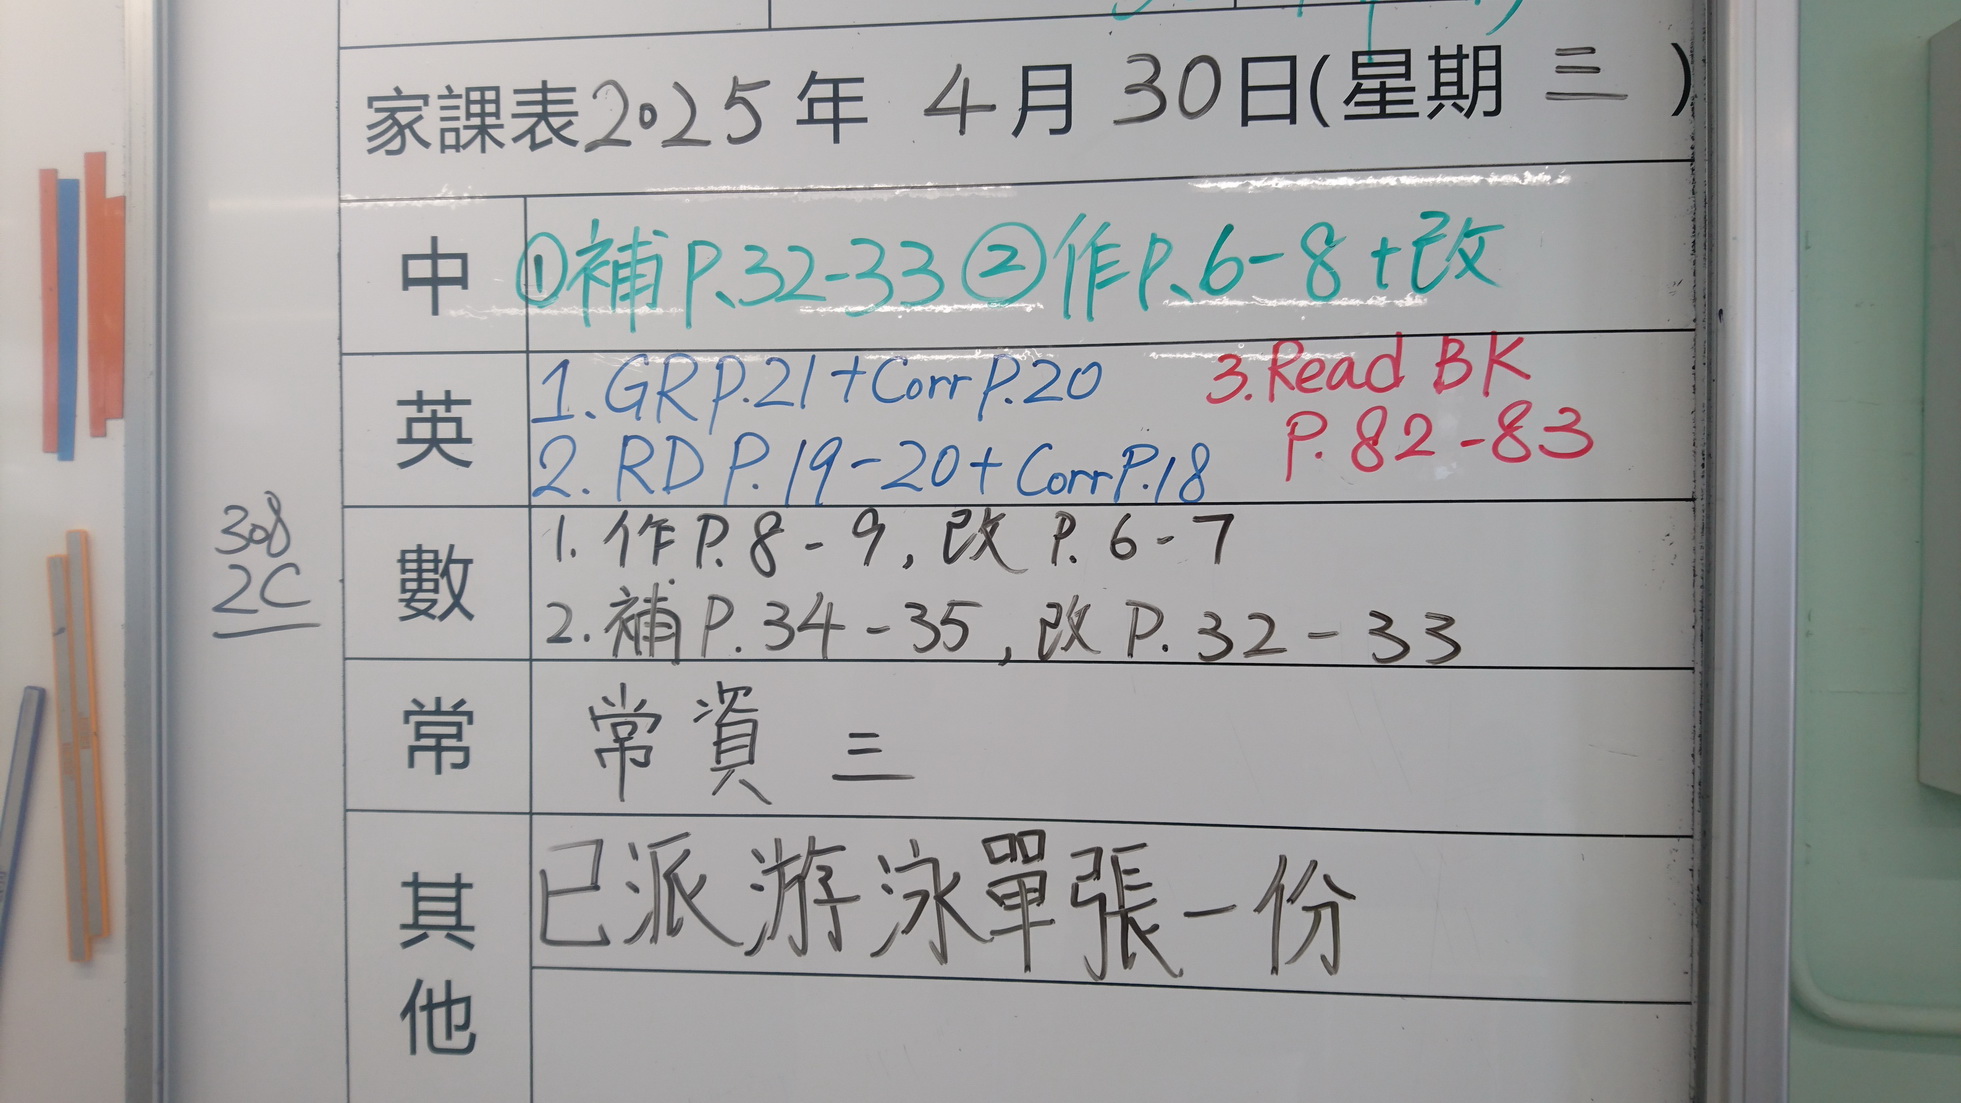 家課表2025年 4月 30日(星期 三 )
中 ①補P.32-33 ②作P.6-8+改
英 1. GR P.21+Corr P.20 3. Read BK
P. 82-83
2. RD P.19-20+ Corr P.18
數 1. 作P.8-9, 改 P. 6-7
2. 補P.34-35, 改P.32-33
常 常資 三
其他 已派游泳單張一份
308
2C